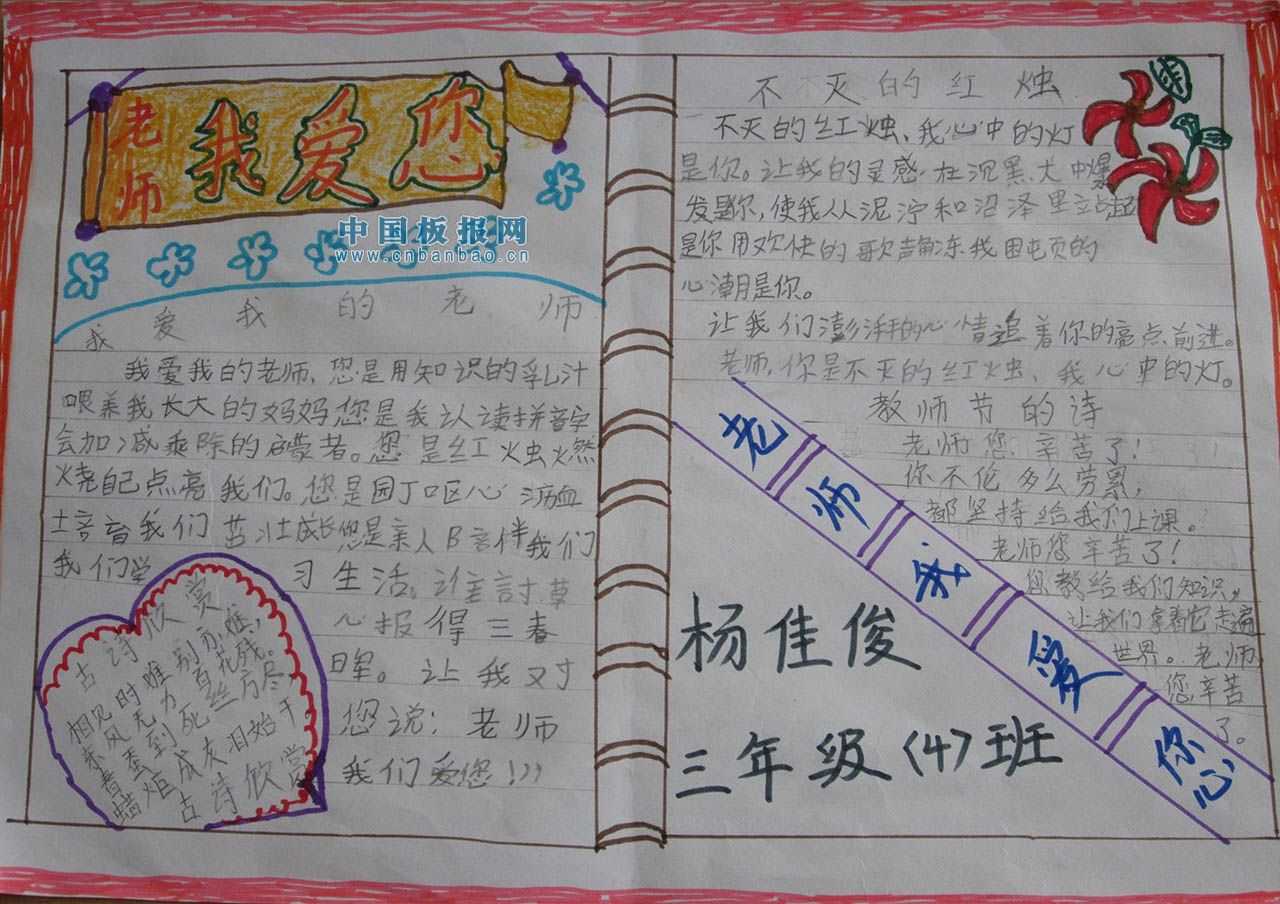 老师
我爱您
中国板报网
www.cnbanbao.cn
我爱我的老师
我爱我的老师、您是用知识的乳汁
喂养我长大的妈妈您是我认读拼音字
会加减乘除的启蒙者。您是红火虫火然
烧自己点亮我们。您是园丁呕心沥血
培育我们茁壮成长您是亲人陪伴我们
我们学
习生活。谁討草
心报得三春
晖。让我对
您说：老师
我们爱您！！！
古诗欣赏
相见时难别亦难，
东风无力百花残。
春蚕到死丝方尽
蜡炬成灰泪始干
古诗欣赏
不灭的红烛
不灭的红烛、我心中的灯
是你。让我的灵感在沉黑犬中爆
发是你，使我从泥泞和沼泽里站起
是你用欢快的歌声解冻我困顿的
心潮是你。
让我们澎湃的心情追着你的亮点前进。
老师，你是不灭的红烛、我心中的灯。
教师节的诗
老师您辛苦了！
你不伦多么劳累，
都坚持给我们上课。
老师您辛苦了！
您教给我们知识，
让我们拿着它走遍
世界。老师
您辛苦
了。
老师我爱你
杨佳俊
三年级(4)班